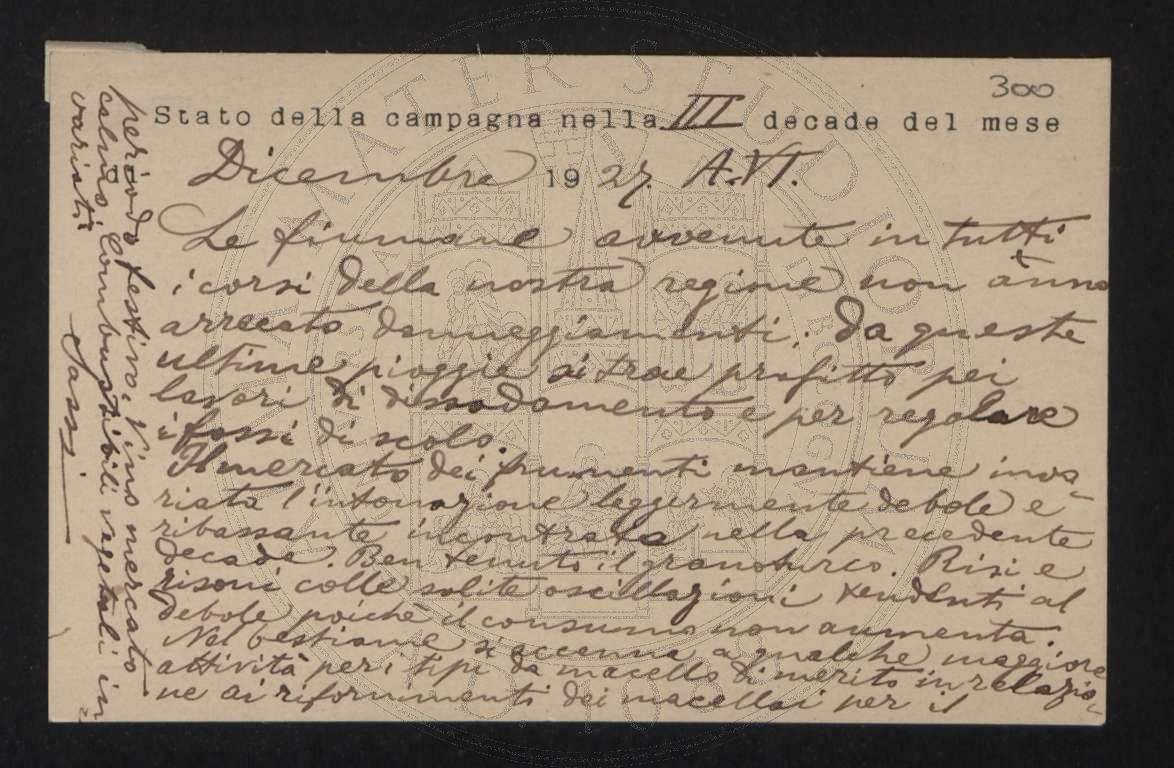 300
Stato della campagna nella III decade del mese
di Dicembre 1927. A.VI.
Le fiumane avvenute in tutti
i corsi della nostra regione non ànno
arrecato danneggiamenti. Da queste
ultime pioggie si trae profitto pei
lavori di dissodamento e per regolare
i fossi di scolo.
Il mercato dei frumenti mantiene inva-
riata l'intonazione leggermente debole e
ribassante incontrata nella precedente
decade. Ben tenuto il granoturco. Risi e
risoni colle solite oscillazioni tendenti al
debole poichè il consumo non aumenta.
Nel bestiame si accenna a qualche maggiore
attività per i tipi da macello di merito in relazio-
ne ai rifornimenti dei macellai per il
periodo festivo. Vino mercato
calmo. Combustibili vegetali in-
variati.
Sassi
ALMA MATER STUDIORUM